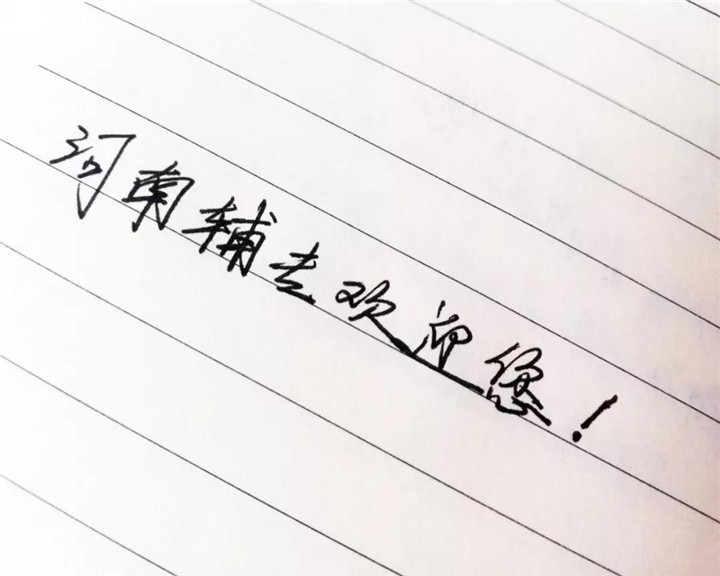 河南辅专欢迎您！